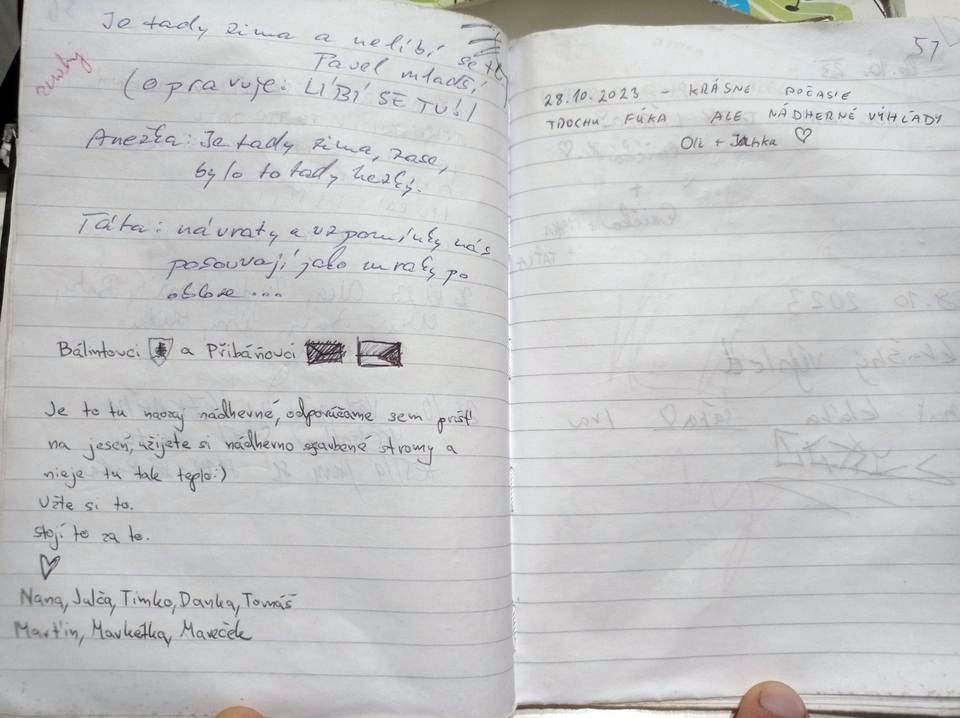 Je tady zima a nelíbí se
Pavel mladší
(opravuje: LÍBÍ SE TU!)
Anežka: Je tady zima, zase,
bylo to tady hezký.
Táta: návraty a vzpomínky nás
posouvají jako mraky po
obloze ...
Bálintovci a Přibáňovci
Je to tu naozaj nádherné, odporúčame sem prísť
na jeseň, užijete si nádherno sfarbené stromy a
nieje tu také teplo:)
Užite si to.
Stojí to za to.
Nana, Julča, Timko, Danka, Tomáš
Martin, Markétka, Mareček
51
28.10.2023 - KRÁSNE POČASIE
TROCHU FÚKA ALE NÁDHERNÉ VÝHĽADY
Oli + Janka ♡